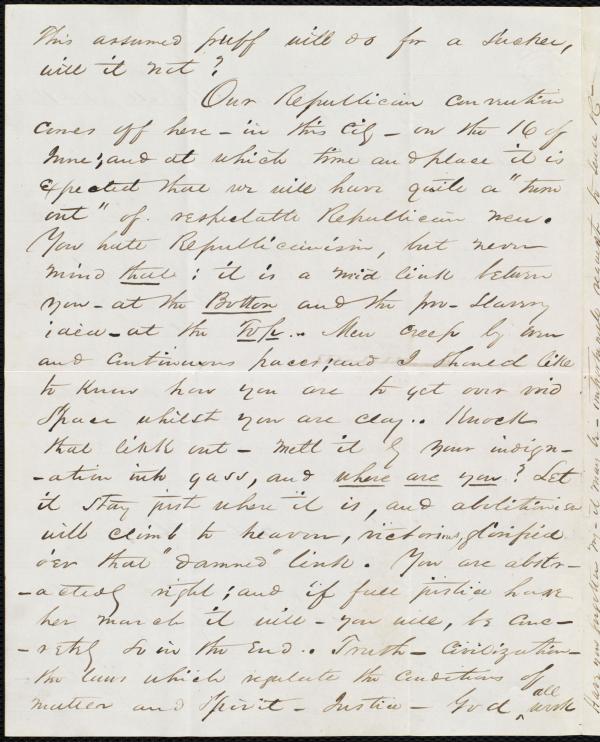 This assumed puff will do for a sucker,
will it not?
Our Republican convention
comes off here - in this city - on the 16 of
June; and at which time and place it is
expected that we will have quite a "turn
out" of respectable Republican men.
You hate Republicanism, but never
mind that: it is a mid link between
you - at the Bottom and the pro-Slavery
idea - at the Top.. Men creep by
and continuous paces; and I should like
to know how you are to get over void
space whilst you are clay.. Knock
that link out - melt it by your indign-
-ation into gass, and where are you? Let
it stay just where it is, and abolitionism
will climb to heaven, victorious, glorified
o'er that "damned" link. You are abstr-
-actedly right; and if full justice have
her march it will - you will, be conc-
-retely so in the End.. Truth - civilization -
the laws which regulate the conditions of
matter and Spirit - Justice - God all work
Have you forgotten my - it may be - unfortunate request to have